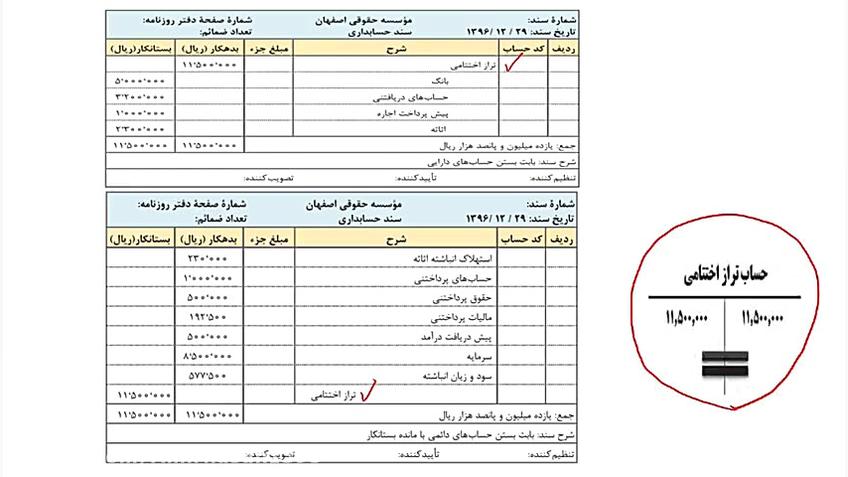 شمارهٔ سند: مؤسسه حقوقی اصفهان شمارهٔ صفحهٔ دفتر روزنامه:
تاریخ سند: ۲۹ / ۱۲ /۱۳۹۶ سند حسابداری تعداد ضمائم:
ردیف کد حساب شرح مبلغ جزء بدهکار (ریال) بستانکار(ریال)
تراز اختتامی ۱۱٬۵۰۰٬۰۰۰
بانک ۵٬۰۰۰٬۰۰۰
حساب‌های دریافتنی ۳٬۲۰۰٬۰۰۰
پیش پرداخت اجاره ۱٬۰۰۰٬۰۰۰
اثاثه ۲٬۳۰۰٬۰۰۰
جمع: یازده میلیون و پانصد هزار ریال ۱۱٬۵۰۰٬۰۰۰ ۱۱٬۵۰۰٬۰۰۰
شرح سند: بابت بستن حساب‌های دارایی
تنظیم‌کننده: تأییدکننده: تصویب‌کننده:
شمارهٔ سند: مؤسسه حقوقی اصفهان شمارهٔ صفحهٔ دفتر روزنامه:
تاریخ سند: ۲۹ / ۱۲ /۱۳۹۶ سند حسابداری تعداد ضمائم:
ردیف کد حساب شرح مبلغ جزء بدهکار (ریال) بستانکار(ریال)
استهلاک انباشته اثاثه ۲۳۰٬۰۰۰
حساب‌های پرداختنی ۱٬۰۰۰٬۰۰۰
حقوق پرداختنی ۵۰۰٬۰۰۰
مالیات پرداختنی ۱۹۲٬۵۰۰
پیش دریافت درآمد ۵۰۰٬۰۰۰
سرمایه ۸٬۵۰۰٬۰۰۰
سود و زیان انباشته ۵۷۷٬۵۰۰
تراز اختتامی ۱۱٬۵۰۰٬۰۰۰
جمع: یازده میلیون و پانصد هزار ریال ۱۱٬۵۰۰٬۰۰۰ ۱۱٬۵۰۰٬۰۰۰
شرح سند: بابت بستن حساب‌های دائمی با مانده بستانکار
تنظیم‌کننده: تأییدکننده: تصویب‌کننده:
حساب تراز اختتامی
۱۱,۵۰۰,۰۰۰ ۱۱,۵۰۰,۰۰۰